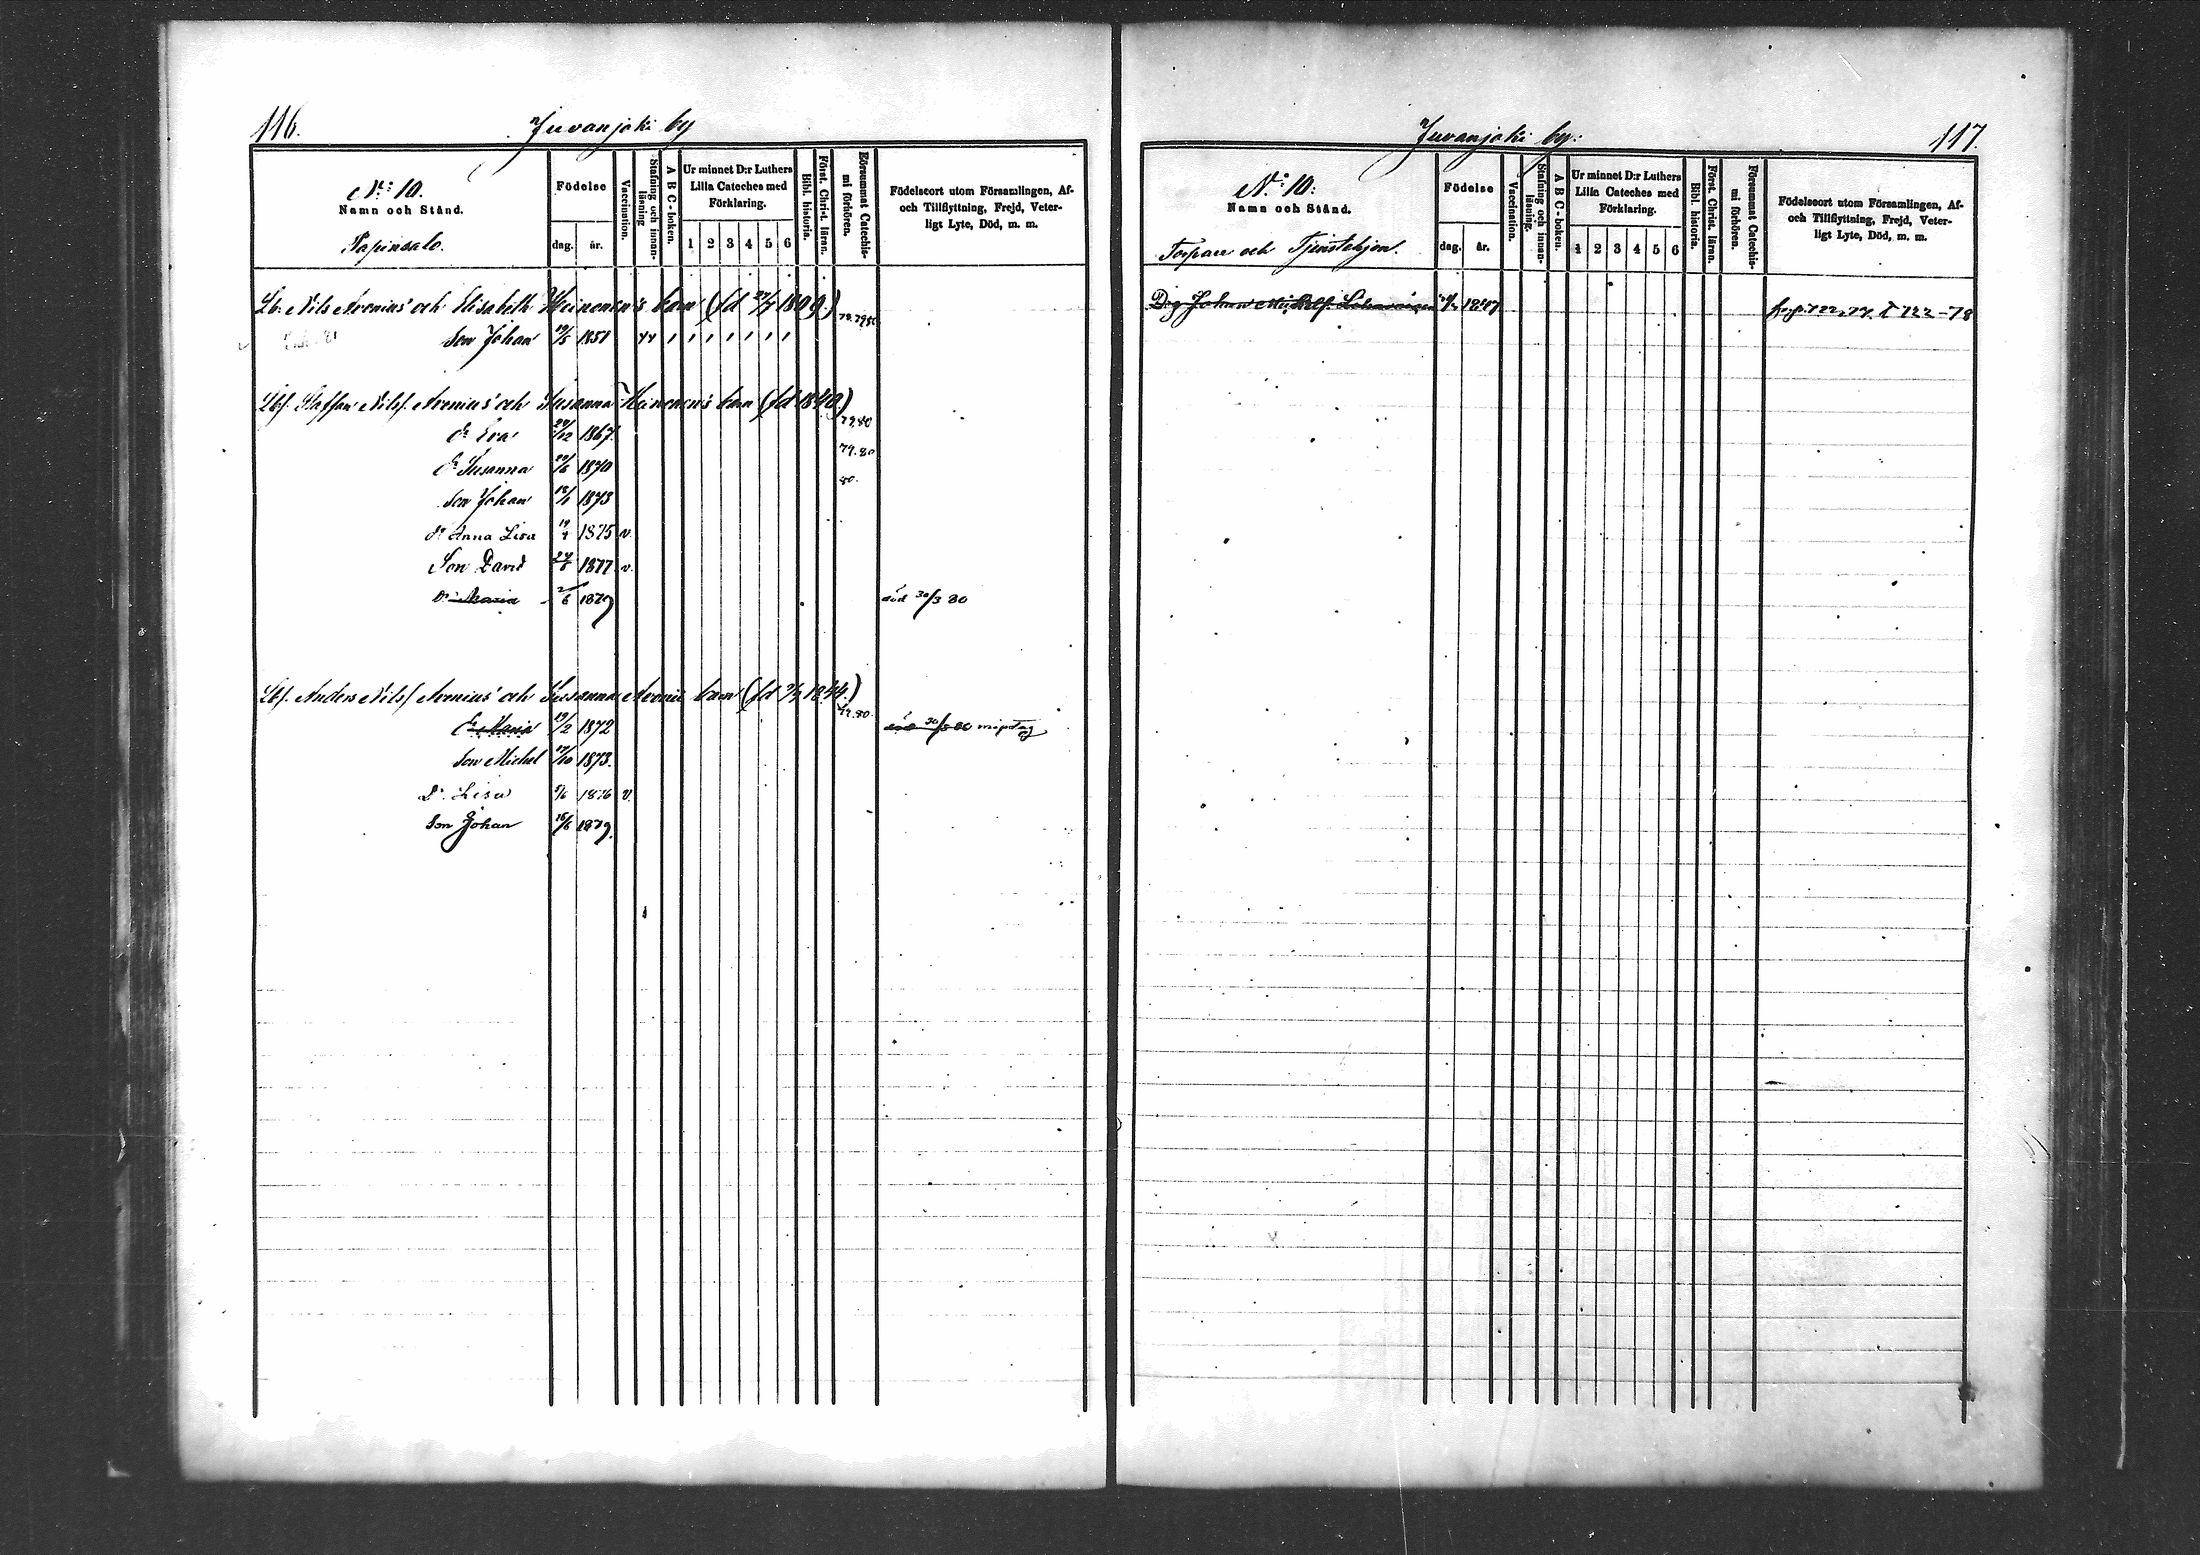 116.
Juvanjoki by
No: 10.
Namn och Stånd.
Papinsalo.
Födelse
dag. år.
Vaccination.
Stafning och innan-läsning
A B C-boken.
Ur minnet D:r Luthers Lilla Cateches med Förklaring.
1 2 3 4 5 6
Bibl. historia.
Först. Christ. läran.
Försummat Catechis-mi förhören.
Födelseort utom Församlingen, Af- och Tillflyttning, Frejd, Veter-ligt Lyte, Död, m. m.
Lb. Nils Aronius' och Elisabeth Heinonen's barn (fd 27/7 1809.) 78.79.80
Son Johan 19/5 1851
Lbf. Staffan Nilsf. Aronius' och Susanna Heinonen's barn (fd 1840)
79.80
Dr Eva 24/12 1867.
79.80
Dr Susanna 20/6 1870
80.
Son Johan 18/1 1873
Dr Anna Lisa 19/4 1875 v.
Son David 24/8 1877 v.
Dr Maria 2/6 1879 död 30/3 80
Lbf. Anders Nilsf Aronius' och Susanna Aronii barn (fd 1844.)
79.80.
Dr Maria 19/2 1872 död 30/3 80 misstag
Son Michel 17/10 1873.
Dr. Lisa 5/6 1876 v.
Son Johan 16/6 1879.
Juvanjoki by:
117.
No: 10:
Namn och Stånd.
Torpare och Tjenstehjon.
Födelse
dag. år.
Vaccination.
Stafning och innan-läsning.
A B C-boken.
Ur minnet D:r Luthers Lilla Cateches med Förklaring.
1 2 3 4 5 6
Bibl. historia.
Först. Christ. läran.
Försummat Catechis-mi förhören.
Födelseort utom Församlingen, Af- och Tillflyttning, Frejd, Veter-ligt Lyte, Död, m. m.
Dg Johan 1847 122-78